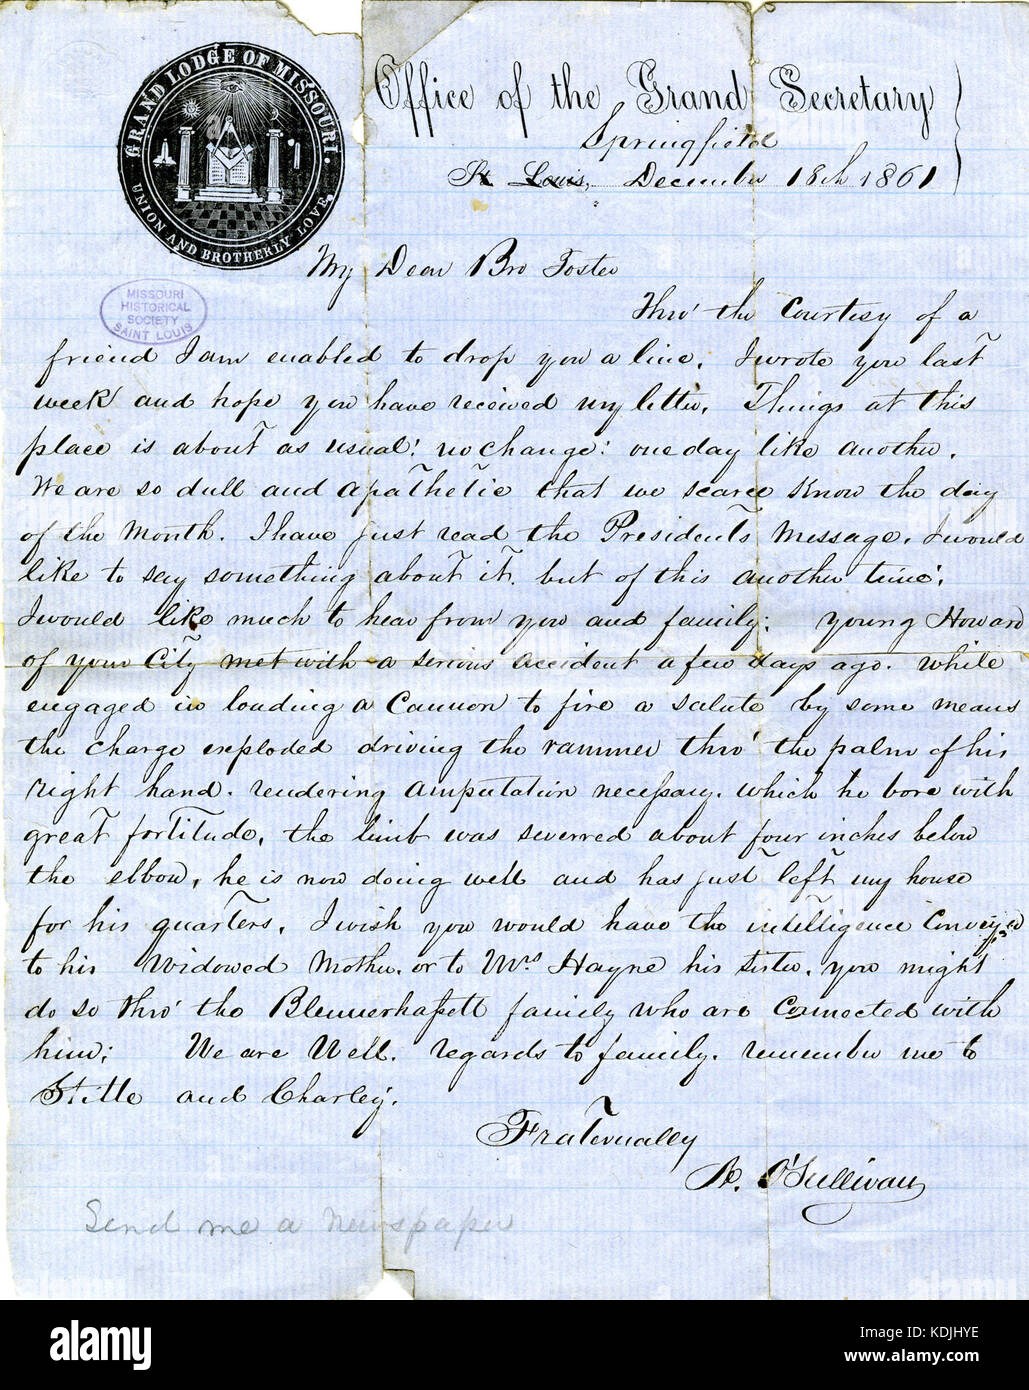 GRAND LODGE OF MISSOURI.
UNION AND BROTHERLY LOVE.
Office of the Grand Secretary
Springfield
St Louis, December 18th 1861
My Dear Bro Foster
MISSOURI
HISTORICAL
SOCIETY
SAINT LOUIS
Thro' the Courtesy of a
friend I am enabled to drop you a line. I wrote you last
week and hope you have received my letter. Things at this
place is about as usual: no change: one day like another.
We are so dull and apathetic that we scarce Know the day
of the Month. I have just read the President's Message. I would
like to say something about it. but of this another time:
I would like much to hear from you and family: young Howard
of your City met with a serious accident a few days ago. While
engaged in loading a Cannon to fire a salute by some means
the charge exploded driving the rammer thro' the palm of his
right hand. rendering amputation necessary. which he bore with
great fortitude, the limb was severred about four inches below
the elbow, he is now doing well and has just left my house
for his quarters. I wish you would have the intelligence Conveyed
to his Widowed Mother. or to Mrs Hayne his sister. you might
do so thro' the Blennerhassett family who are Connected with
him; We are Well. regards to family. remember me to
and Charley.
Fraternally
A. O'Sullivan
Send me a newspaper
alamy
Image ID: KDJHYE
www.alamy.com